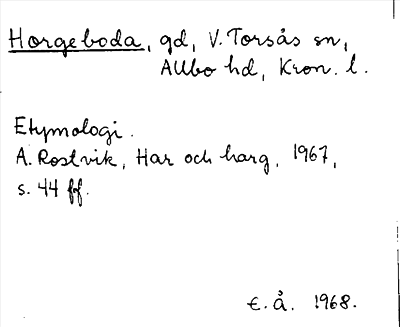 Horgeboda, gd, V. Torsås sn,
Allbo hd, Kron. l.
Etymologi.
A. Rostvik, Har och harg, 1967,
s. 44 ff.
E. Å. 1968.